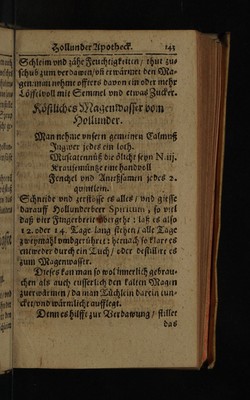 Hollunder Apotheck. 143
Schleim vnd zähe Feuchtigkeiten / thut zu-
schub zum verdawen / vñ erwärmet den Ma-
gen: man nehme offters davon ein oder mehr
Löffelvoll mit Semmel vnd etwas Zucker.
Köstliches Magenwasser vom
Hollunder.
Man nehme vnsern gemeinen Calmuß
Ingwer jedes ein loch.
Muscatennüß die ölicht seyn N. iij.
Krausemüntze eine handvoll
Fenchel vnd Anießsamen jedes 2.
quintlein.
Schneide vnd zerstosse es alles / vnd giesse
darauff Hollunderbeer Spiritum, so viel
daß vier Finger breit vbergehe: laß es also
12. oder 14. Tage lang stehen / alle Tage
zweymahl vmbgerühret: hernach so klare es
entweder durch ein Tuch / oder destillire es
zum Magenwasser.
Dieses kan man so wol innerlich gebrau-
chen als auch eusserlich den kalten Magen
zuerwärmen / da man Tüchlein darein tun-
cket / vnd wärmlicht aufflegt.
Denn es hilfft zur Verdawung / stillet
das